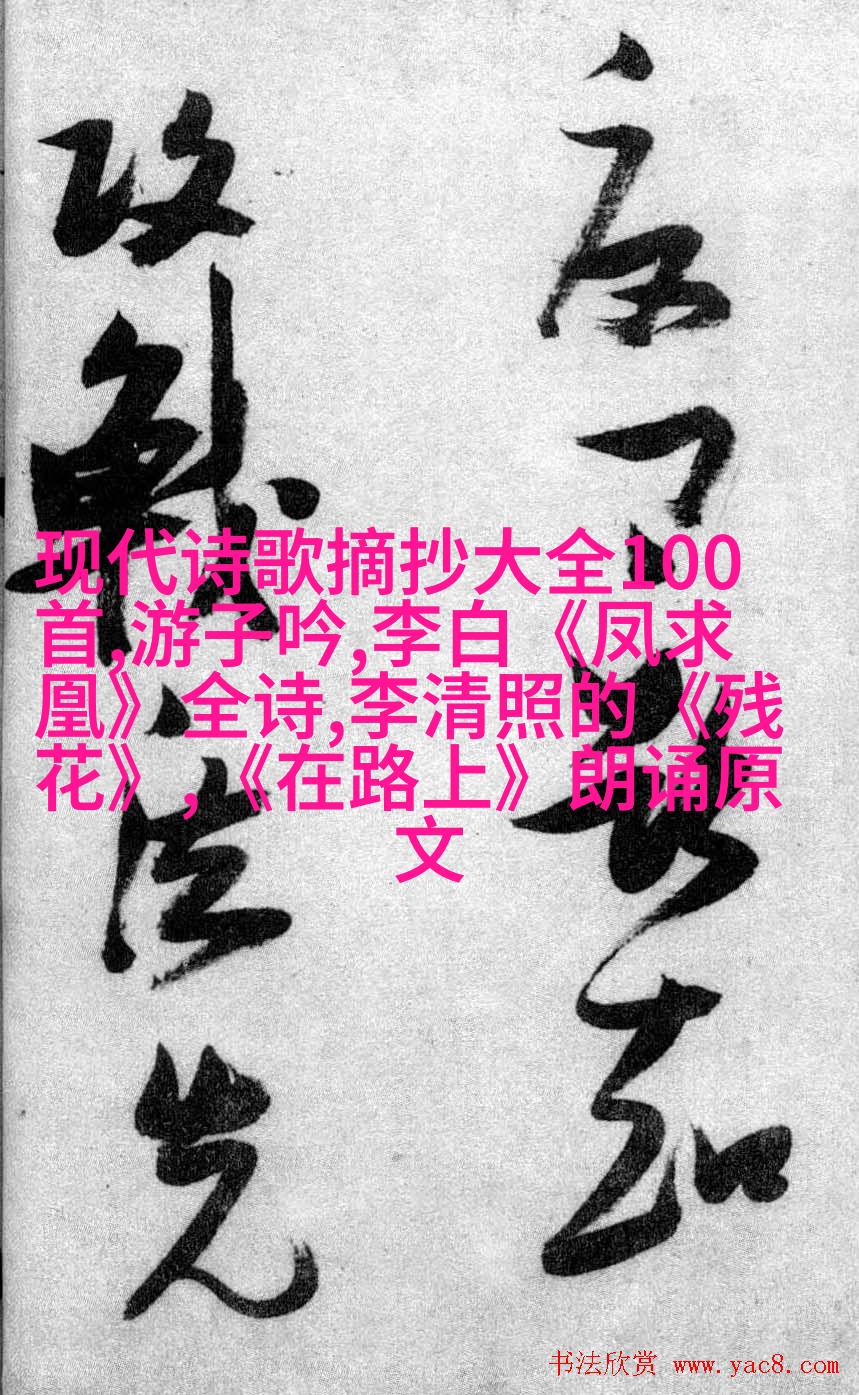 知
攻戰先
现代诗歌摘抄大全100
首,游子吟,李白《凤求
凰》全诗,李清照的《残
花》,《在路上》朗诵原
文
书法欣赏 www.yac8.com